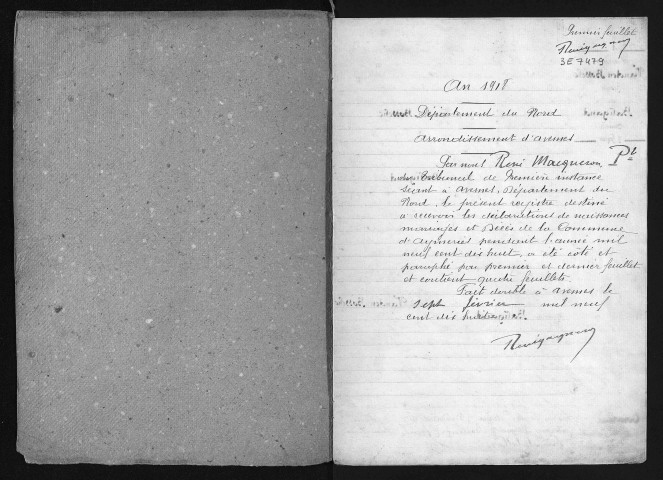 Premier feuillet
3E 7479
An 1918
Département du Nord
arrondissement d'avesnes
Par nous René Macqueron Pt
du Tribunal de Première instance
séant à avesnes, Département du
Nord, le présent registre destiné
à recevoir les déclarations de naissances
mariages et Décès de la Commune
d'aymeries pendant l'année mil
neuf cent dix huit, a été coté et
paraphé par premier et dernier feuillet
et contient quatre feuillets.
Fait double à avesnes le
sept février mil neuf
cent dix huit